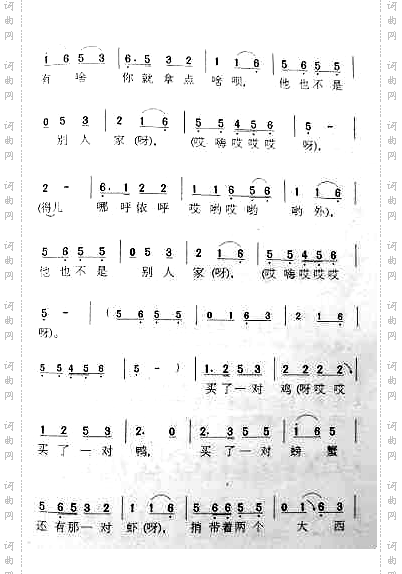 i 6 5 3 | 6. 5 3 2 | 1 1 6 | 5 6 5 5 |
有 啥 你就拿点 啥呗, 他也不是
0 5 3 | 2 1 6 | 5 5 4 5 6 | 5 - |
别人 家(呀), (哎嗨哎哎哎 呀),
2 - | 6. 1 2 2 | 1 1 6 5 6 | 1 1 6 |
(得儿 哪呼侬呼 哎哟哎哟 哟外),
5 6 5 5 | 0 5 3 | 2 1 6 | 5 5 4 5 6 |
他也不是 别人 家(呀), (哎嗨哎哎哎
5 - | (5 6 5 5 | 0 1 6 3 | 2 1 6 |
呀)。
5 5 4 5 6 | 5 - ) | 1. 2 5 3 | 2 2 2 2 |
买了一对 鸡(呀哎哎
1 2 5 3 | 2. 0 | 2. 3 5 5 | i 6 5 |
买了一对 鸭, 买了一对 螃蟹
5 6 5 3 2 | 1 1 6 | 5 6 5 3 2 | 0 1 6 |
还有那一对 虾(呀), 捎带着两个 大西
词曲网